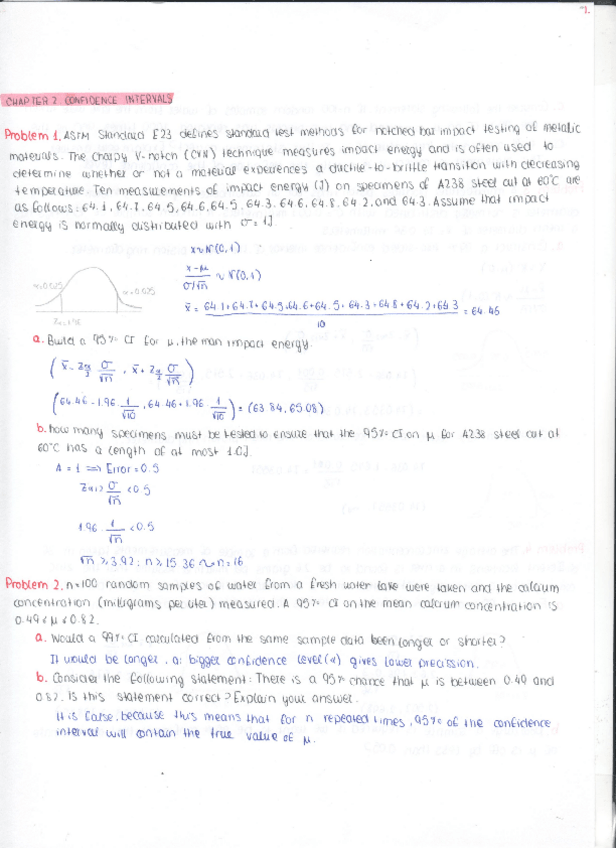 1.
CHAPTER 2 CONFIDENCE INTERVALS
Problem 1. ASTM Standard E23 defines standard test methods for notched bar impact testing of metalic
materials. The charpy V-notch (CVN) technique measures impact energy and is often used to
determine whether or not a material experiences a ductile-to-brittle transition with decreasing
temperature. Ten measurements of impact energy (J) on specimens of A238 steel cut at 60°C are
as follows: 64.1, 64.7, 64.5, 64.6, 64.5, 64.3, 64.6, 64.8, 64.2, and 64.3. Assume that impact
energy is normally distributed with σ=1J.
x~N(0,1)
x-μ / σ/√n ~ N(0,1)
α=0.025 α=0.025
x̄ = 64.1+64.7+64.5+64.6+64.5+64.3+64.8+64.2+64.3 / 10 = 64.46
a. Build a 95% CI for μ, the man impact energy.
(x̄ - Zα/2 σ/√n , x̄ + Zα/2 σ/√n)
(64.46 - 1.96 · 1/√10 , 64.46 + 1.96 · 1/√10) = (63.84, 65.08)
b. how many specimens must be tested to ensure that the 95% CI on μ for A238 steel cut at
60°C has a length of at most 1.0J.
A = 1 ⟹ Error = 0.5
Zα/2 σ/√n < 0.5
1.96 · 1/√n < 0.5
√n ≥ 3.92; n ≥ 15.36 ~ n=16
Problem 2. n=100 random samples of water from a fresh water lake were taken and the calcium
concentration (milligrams per liter) measured. A 95% CI on the mean calcium concentration is
0.49 ≤ μ ≤ 0.82.
a. Would a 99% CI calculated from the same sample data been longer or shorter?
It would be longer. a bigger confidence level (α) gives lower precission.
b. Consider the following statement: There is a 95% chance that μ is between 0.49 and
0.82. Is this statement correct? Explain your answer.
It is false, because this means that for n repeated times, 95% of the confidence
interval will contain the true value of μ.